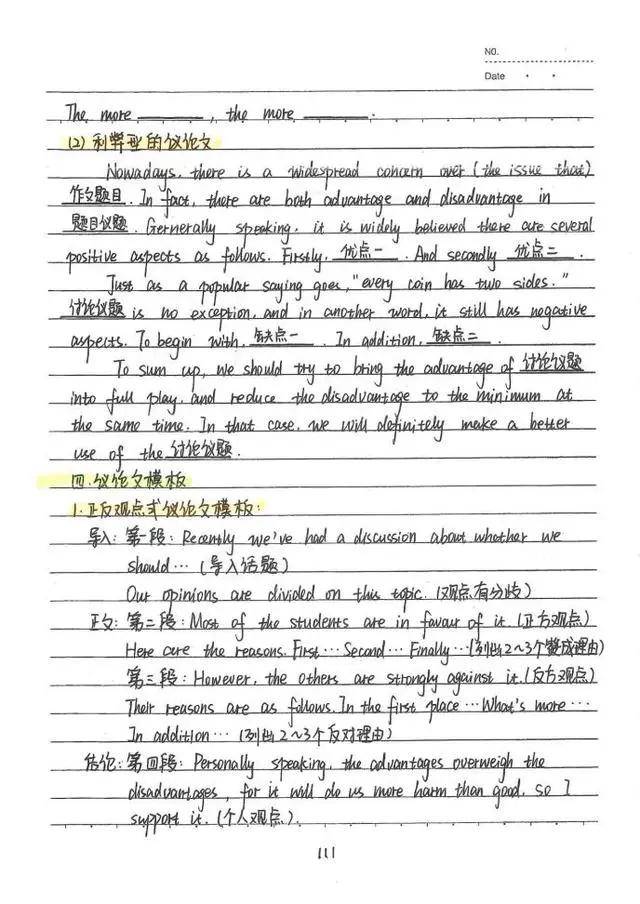 NO.
Date · ·
The more ________, the more ________.
(2) 利弊型的议论文
Nowadays, there is a widespread concern over (the issue that)
作文题目. In fact, there are both advantage and disadvantage in
题目议题. Gernerally speaking, it is widely believed there are several
positive aspects as follows. Firstly, 优点一. And secondly 优点二.
Just as a popular saying goes, "every coin has two sides."
讨论议题 is no exception, and in another word, it still has negative
aspects. To begin with, 缺点一. In addition, 缺点二.
To sum up, we should try to bring the advantage of 讨论议题
into full play, and reduce the disadvantage to the minimum at
the same time. In that case, we will definitely make a better
use of the 讨论议题.
四.议论文模板
1.正反观点式议论文模板:
导入: 第一段: Recently we've had a discussion about whether we
should… (导入话题)
Our opinions are divided on this topic. (观点有分歧)
正文: 第二段: Most of the students are in favour of it. (正方观点)
Here are the reasons. First… Second… Finally… (列出2~3个赞成理由)
第三段: However, the others are strongly against it. (反方观点)
Their reasons are as follows. In the first place… What's more…
In addition… (列出2~3个反对理由)
结论: 第四段: Personally speaking, the advantages overweigh the
disadvantages, for it will do us more harm than good, so I
support it. (个人观点).
111